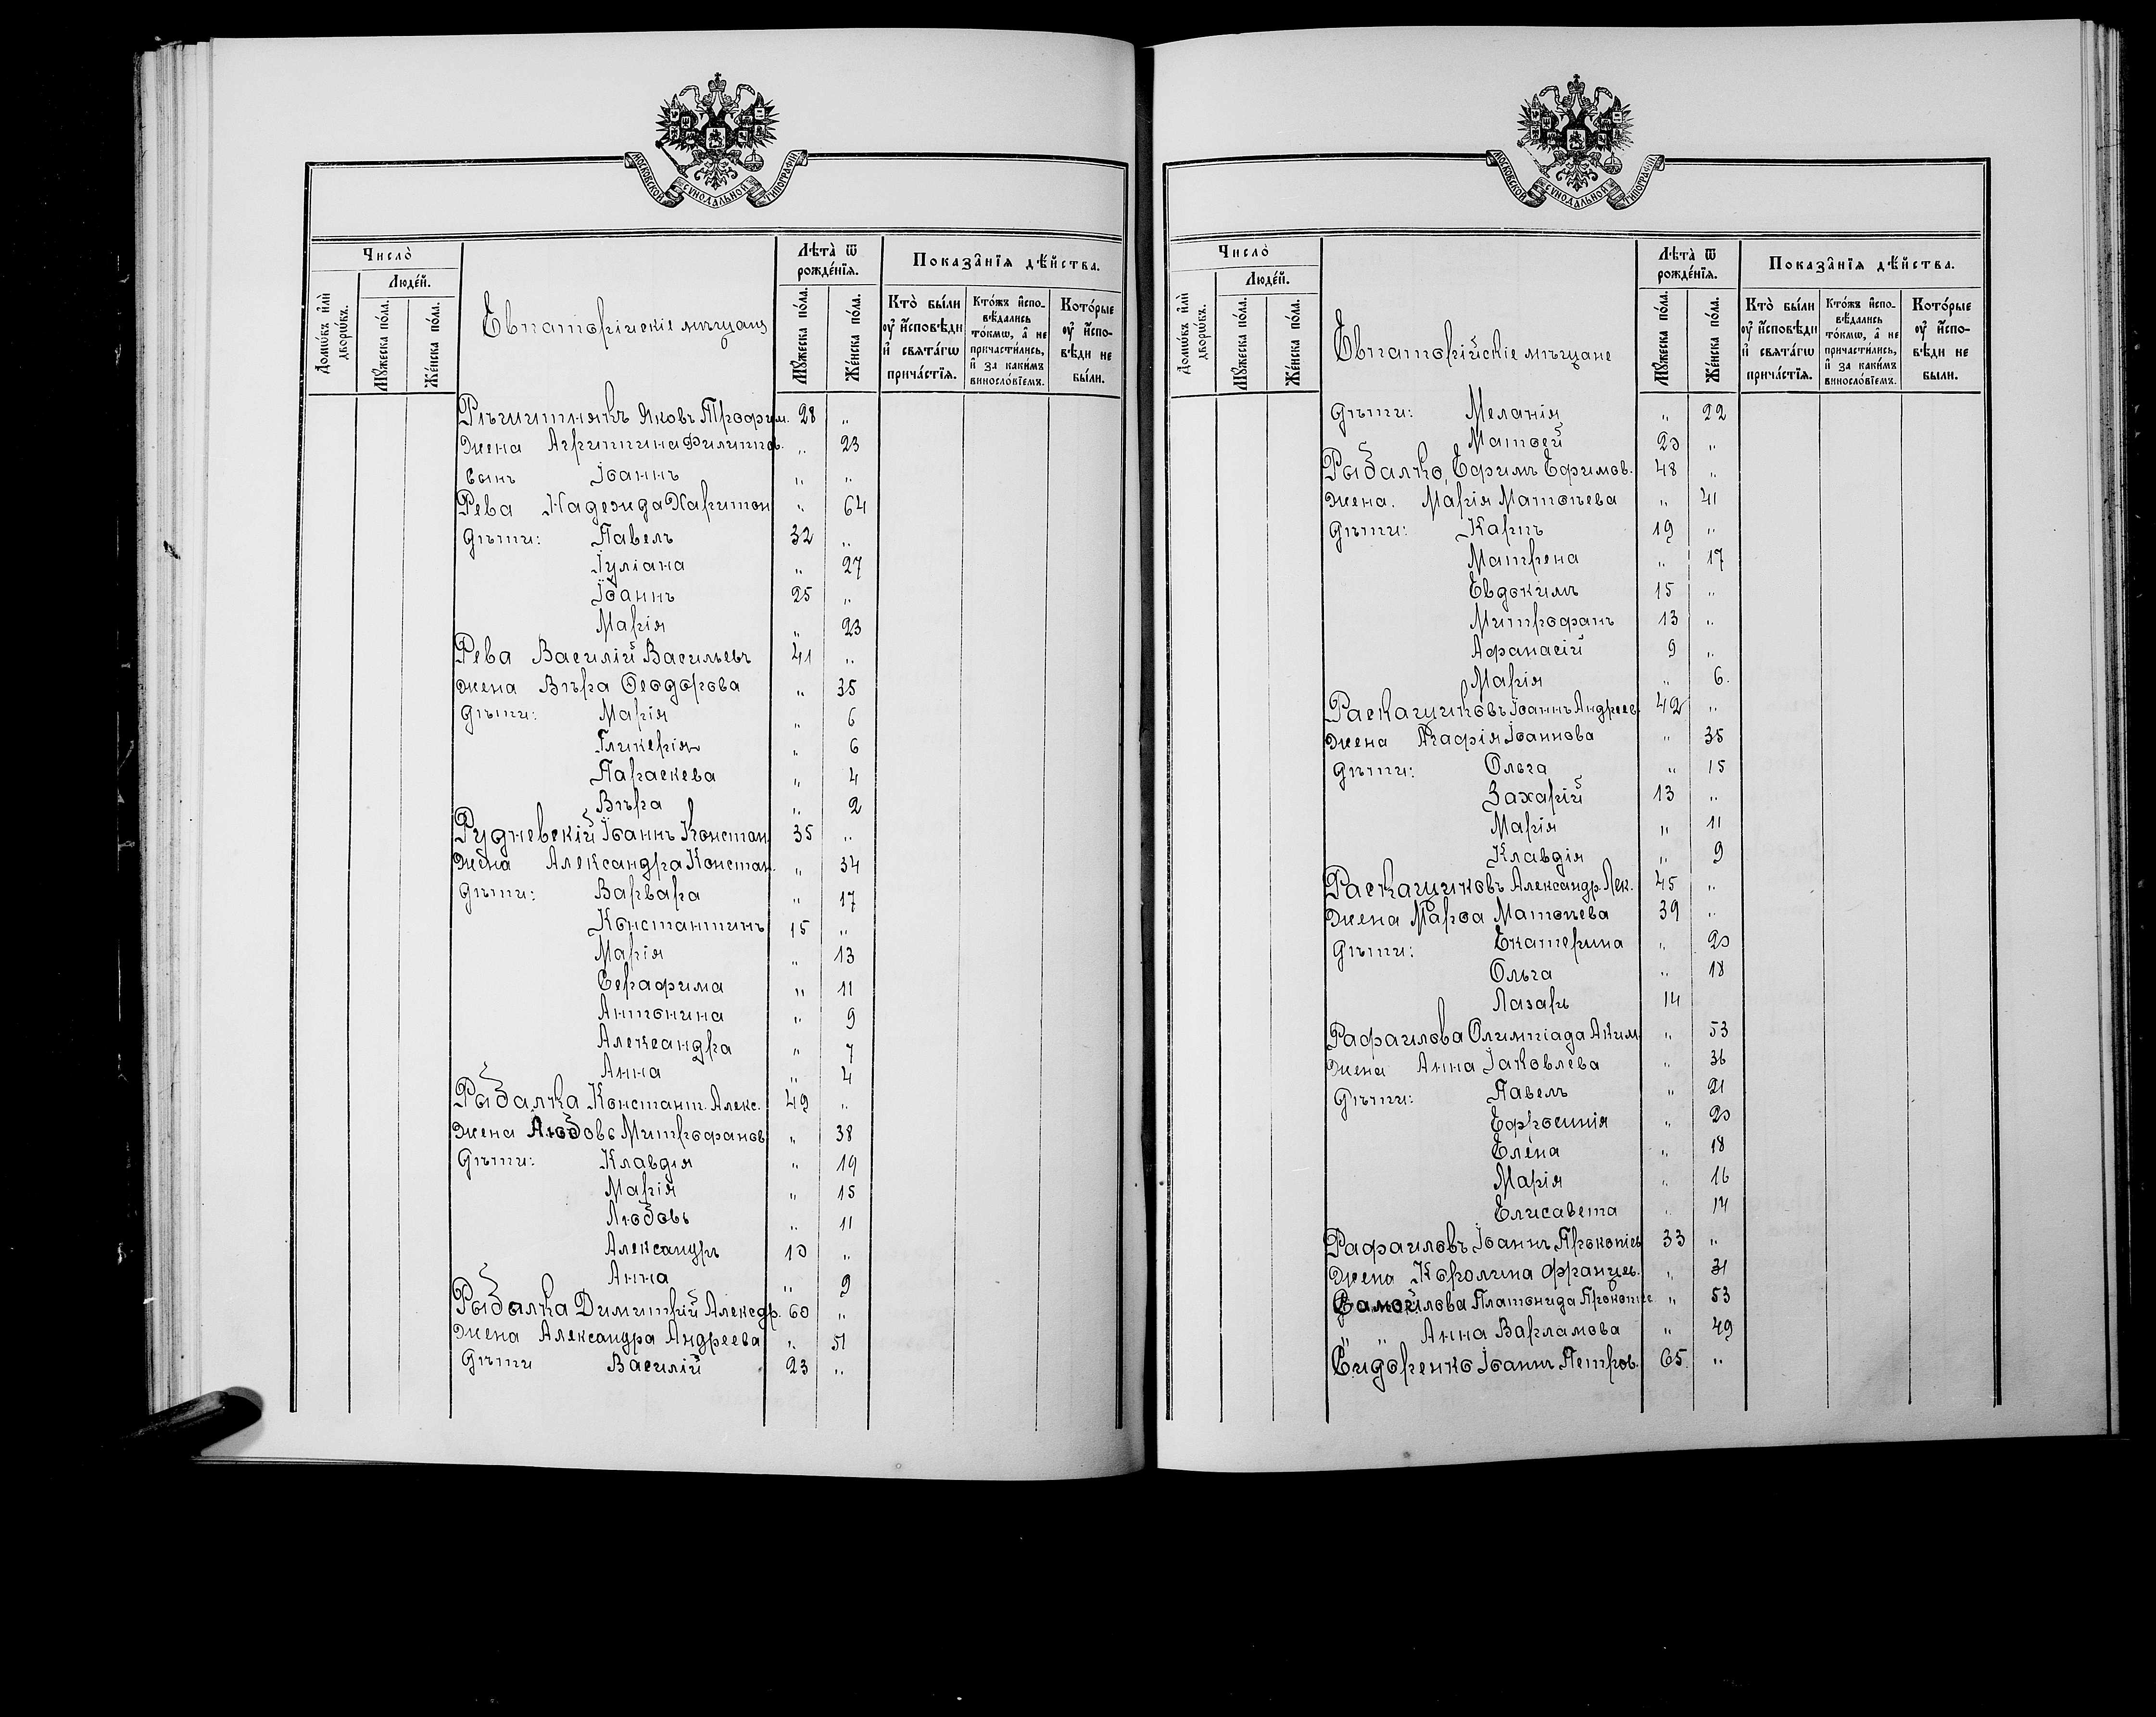 МОСКОВСКОЙ СѴНОДАЛЬНОЙ ТИПОГРАФІИ
Число̀
Люде́й.
Домѡ́въ и҆лѝ дворѡ́въ.
Мꙋ́жеска по́ла.
Же́нска по́ла.
Евпаторійскіе мѣщане
Лѣта̀ ѿ рожде́нїѧ.
Мꙋ́жеска по́ла.
Же́нска по́ла.
Показа̑нїѧ дѣ́йства.
Кто̀ бы́ли оу҆ и҆сповѣди и҆ свѧта́гѡ прича́стїѧ.
Кто́жъ и҆сповѣдались то́кмѡ, а҆ не причасти́лись, и҆ за каки́мъ винослѡ́вїемъ.
Кото́рые оу҆ и҆сповѣди не бы́ли.
Рѣшитнякъ Яковъ Трофим. 28 „
Жена Агриппина Филиппов. „ 23
Сынъ Іоаннъ „ „
Рева Надежда Харитон „ 64
Дѣти: Павелъ 32 „
Іуліана „ 27
Іоаннъ 25 „
Марія „ 23
Рева Василій Васильевъ 41 „
Жена Вѣра Ѳеодорова „ 35
Дѣти: Марія „ 6
Гликерія „ 6
Параскева „ 4
Вѣра „ 2
Рудневскій Іоаннъ Констан. 35 „
Жена Александра Констан. „ 34
Дѣти: Варвара „ 17
Константинъ 15 „
Марія „ 13
Серафима „ 11
Антонина „ 9
Александра „ 7
Анна „ 4
Рыбалка Констант. Алекс. 42 „
Жена Любовь Митрофанов „ 38
Дѣти: Клавдія „ 19
Марія „ 15
Любовь „ 11
Александръ 10 „
Анна „ 9
Рыбалка Димитрій Алексдр. 60 „
Жена Александра Андреева „ 51
Дѣти Василій 23 „
МОСКОВСКОЙ СѴНОДАЛЬНОЙ ТИПОГРАФІИ
Число̀
Люде́й.
Домѡ́въ и҆лѝ дворѡ́въ.
Мꙋ́жеска по́ла.
Же́нска по́ла.
Евпаторійскіе мѣщане
Лѣта̀ ѿ рожде́нїѧ.
Мꙋ́жеска по́ла.
Же́нска по́ла.
Показа̑нїѧ дѣ́йства.
Кто̀ бы́ли оу҆ и҆сповѣди и҆ свѧта́гѡ прича́стїѧ.
Кто́жъ и҆сповѣдались то́кмѡ, а҆ не причасти́лись, и҆ за каки́мъ винослѡ́вїемъ.
Кото́рые оу҆ и҆сповѣди не бы́ли.
Дѣти: Меланія „ 22
Матѳей 20 „
Рыбалко, Ефимъ Ефимов. 48 „
Жена. Марія Матѳѣева „ 41
Дѣти: Карпъ 19 „
Матрена „ 17
Евдокимъ 15 „
Митрофанъ 13 „
Афанасій 9 „
Марія „ 6.
Раскащиковъ Іоаннъ Андреев. 42 „
Жена Агафія Іоаннова „ 35
Дѣти: Ольга „ 15
Захарій 13 „
Марія „ 11
Клавдія „ 9
Раскащиковъ Александр. Лек. 45 „
Жена Марѳа Матѳѣева 39 „
Дѣти: Екатерина „ 20
Ольга „ 18
Лазарь 14
Рафаилова Олимпіада Аким. „ 53
Жена Анна Іаковлева „ 36
Дѣти: Павелъ „ 21
Ефросинія „ 20
Елена „ 18
Марія „ 16
Елисавета „ 14
Рафаиловъ Іоаннъ Прокопіев 33 „
Жена Королина Францев. „ 31
Самойлова Платонида Прокопіе „ 53
„ „ Анна Варламова „ 49
Сидоренко Іоаннъ Петров. 65. „